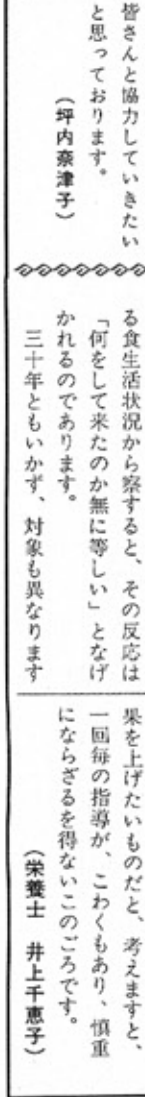 皆さんと協力していきたい
と思っております。
（坪内奈津子）
る食生活状況から察すると、その反応は
「何をして来たのか無に等しい」となげ
かれるのであります。
三十年ともいかず、対象も異なります
果を上げたいものだと、考えますと、
一回毎の指導が、こわくもあり、慎重
にならざるを得ないこのごろです。
（栄養士　井上千恵子）